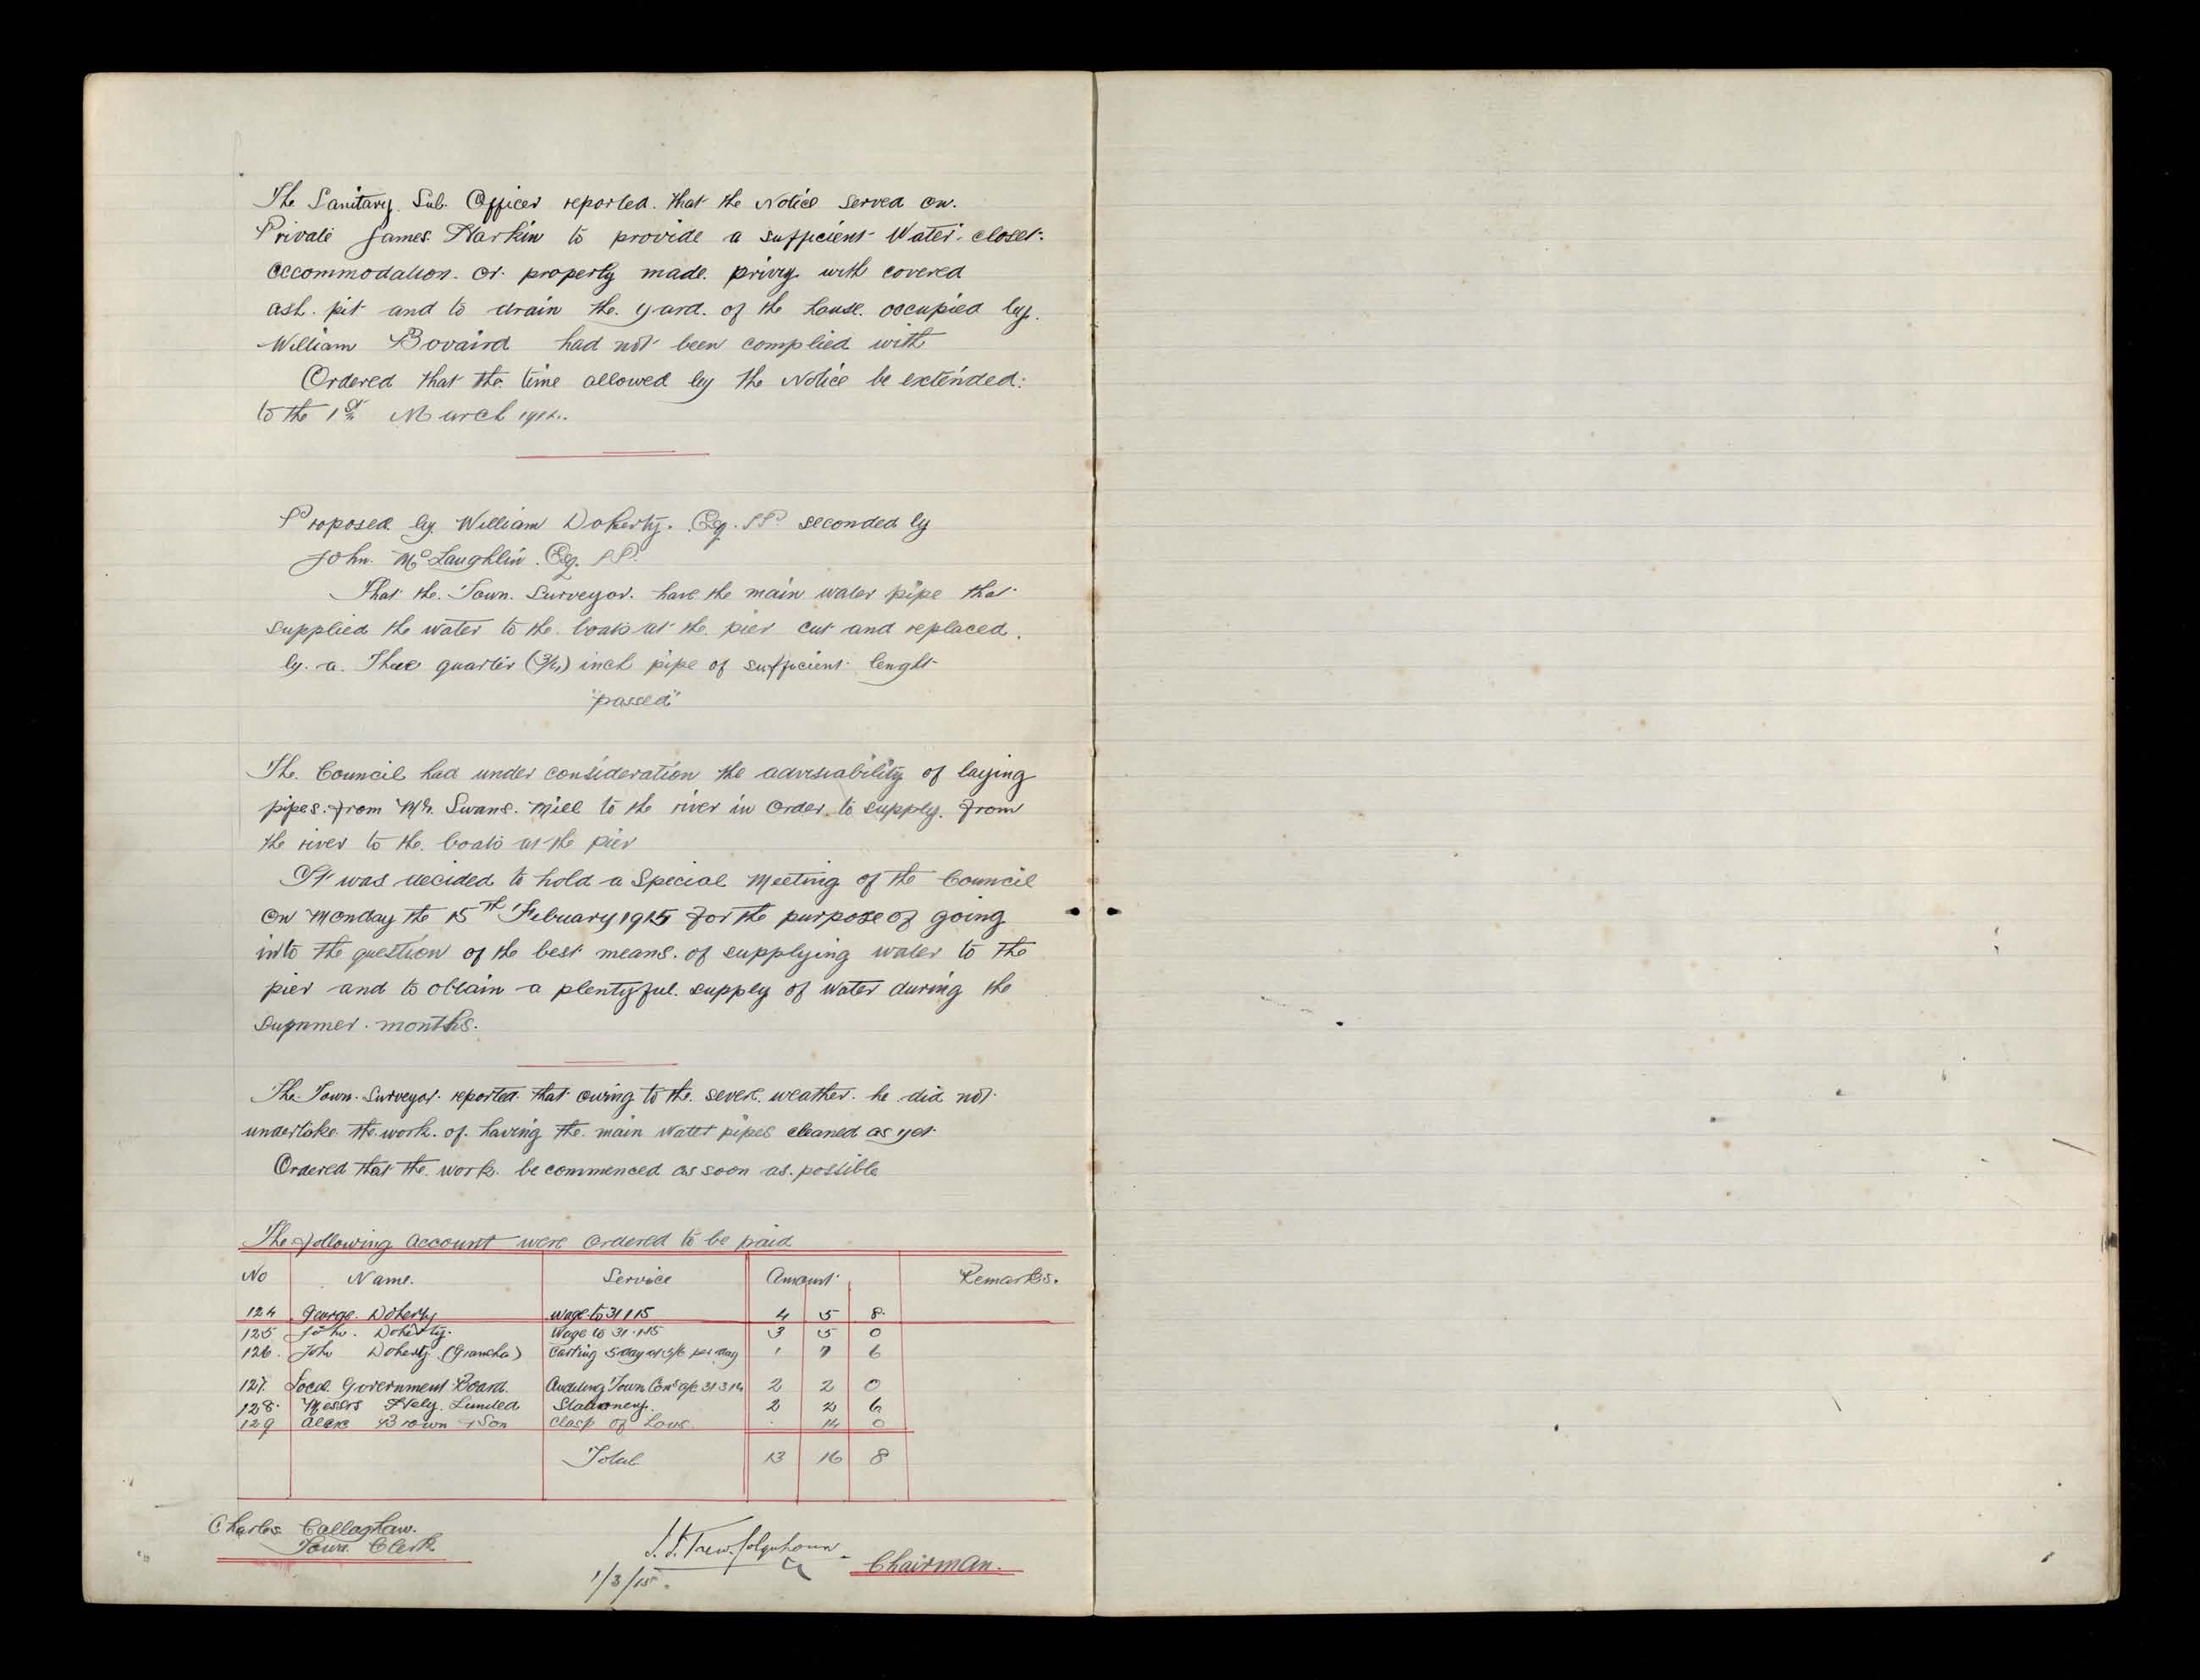 The Sanitary Sub Officer reported that the Notice served on
Private James Harkin to provide a sufficient Water closet
accommodation or properly made privy with covered
ash pit and to drain the yard of the house occupied by
William Bovaird had not been complied with
Ordered that the time allowed by the Notice be extended
to the 1st March
Proposed by William Doherty Esq. J.P. seconded by
John McLaughlin Esq. J.P.
That the Town Surveyor have the main water pipe that
supplied the water to the boats at the pier cut and replaced
by a Three quarter (3/4) inch pipe of sufficient lenght
"passed"
The Council had under consideration the adviseability of laying
pipes from Mr. Swans Mill to the river in order to supply from
the river to the boats at the pier
It was decided to hold a Special Meeting of the Council
on Monday the 15th Febuary 1915 for the purpose of going
into the question of the best means of supplying water to the
pier and to obtain a plentyful supply of water during the
summer months.
The Town Surveyor reported that owing to the severe weather he did not
undertake the work of having the main water pipes cleaned as yet
Ordered that the work be commenced as soon as possible
The following account were ordered to be paid
No Name. Service Amount Remarks.
124 George Doherty Wage to 31 1 15 4 5 8
125 John Doherty Wage to 31 1 15 3 5 0
126 John Doherty (Grancha) Carting 5 day at 5/6 per day 1 7 6
127 Local Government Board. Auditing Town Coms a/c 31 3 14 2 2 0
128 Messrs Hely Limited Stationery 2 2 6
129 Alexr Brown & Son Clasp of 14 0
Total 13 16 8
Charles Callaghan.
Town Clerk
Colquhoun Chairman.
1/3/15.